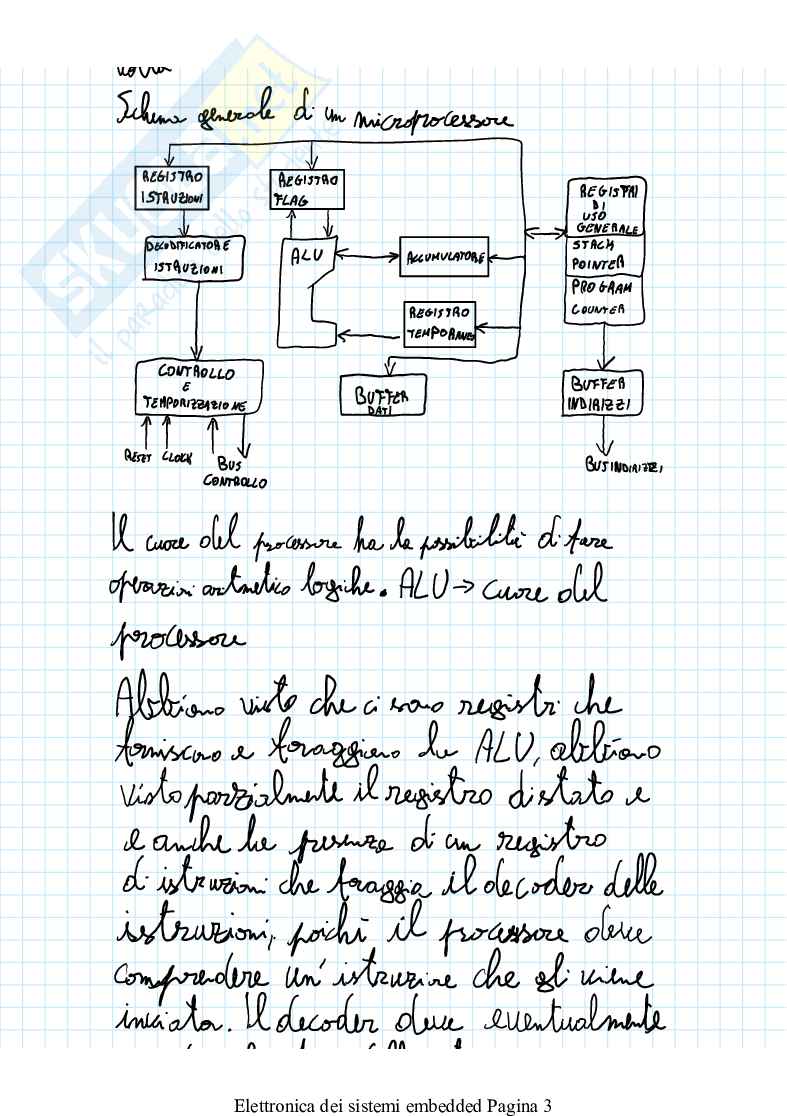 Schema generale di un microprocessore
REGISTRO
ISTRUZIONI
REGISTRO
FLAG
REGISTRI
DI
USO
GENERALE
STACK
POINTER
PROGRAM
COUNTER
DECODIFICATORE
ISTRUZIONI
ALU
ACCUMULATORE
REGISTRO
TEMPORANEO
CONTROLLO
E
TEMPORIZZAZIONE
BUFFER
DATI
BUFFER
INDIRIZZI
RESET CLOCK BUS
CONTROLLO
BUS INDIRIZZI
Il cuore del processore ha la possibilità di fare
operazioni aritmetico logiche. ALU → cuore del
processore
Abbiamo visto che ci sono registri che
forniscono e foraggiano la ALU, abbiamo
visto parzialmente il registro di stato e
e anche la presenza di un registro
di istruzioni che foraggia il decoder delle
istruzioni, poichè il processore deve
comprendere un'istruzione che gli viene
inviata. Il decoder deve eventualmente
Elettronica dei sistemi embedded Pagina 3
SKUOLA.net
il paradiso dello studente